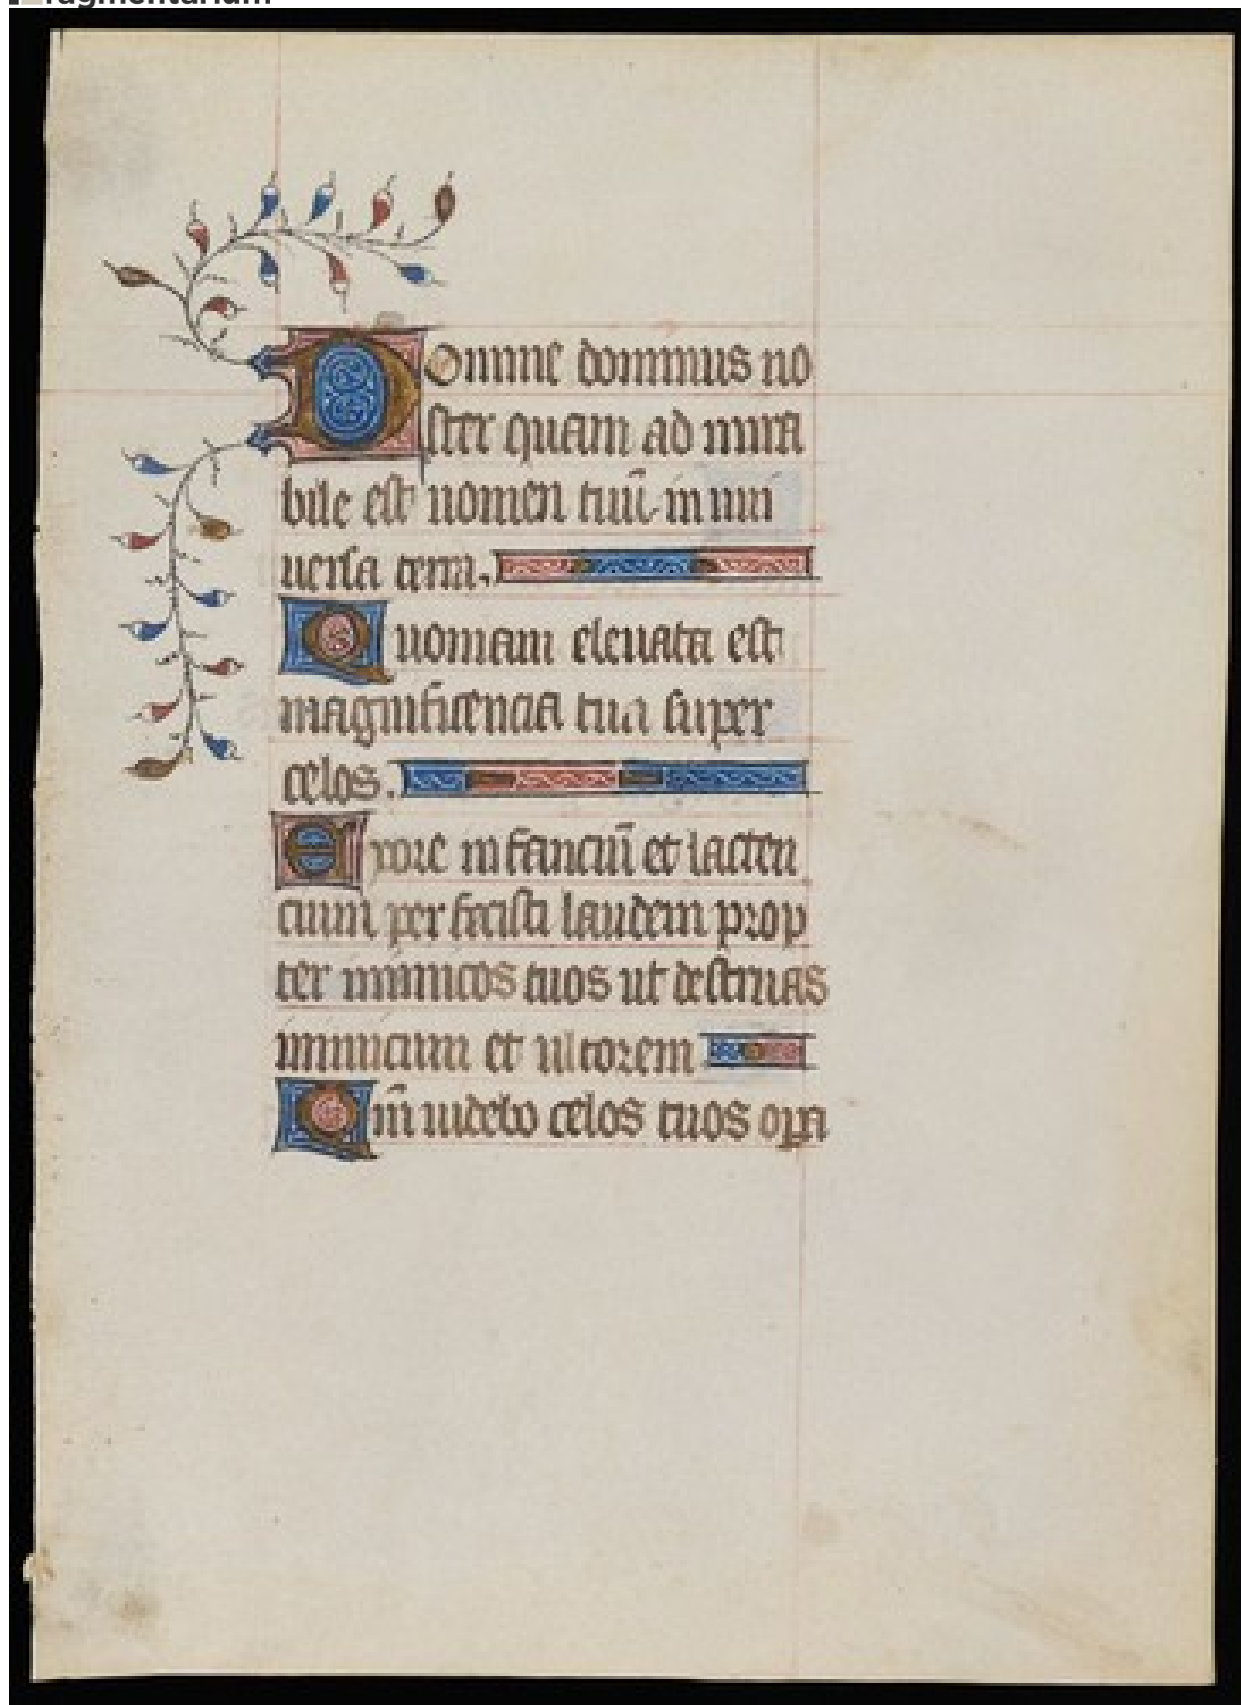 fragmentarium
Domine dominus no
ster quam ad mira
bile est nomen tuū in uni
uersa terra.
Quoniam eleuata est
magnificencia tua super
celos.
Ex ore infanciū et lacten
cium perfecisti laudem prop
ter inimicos tuos ut destruas
inimicum et ultorem
Qm̄ uidebo celos tuos opa